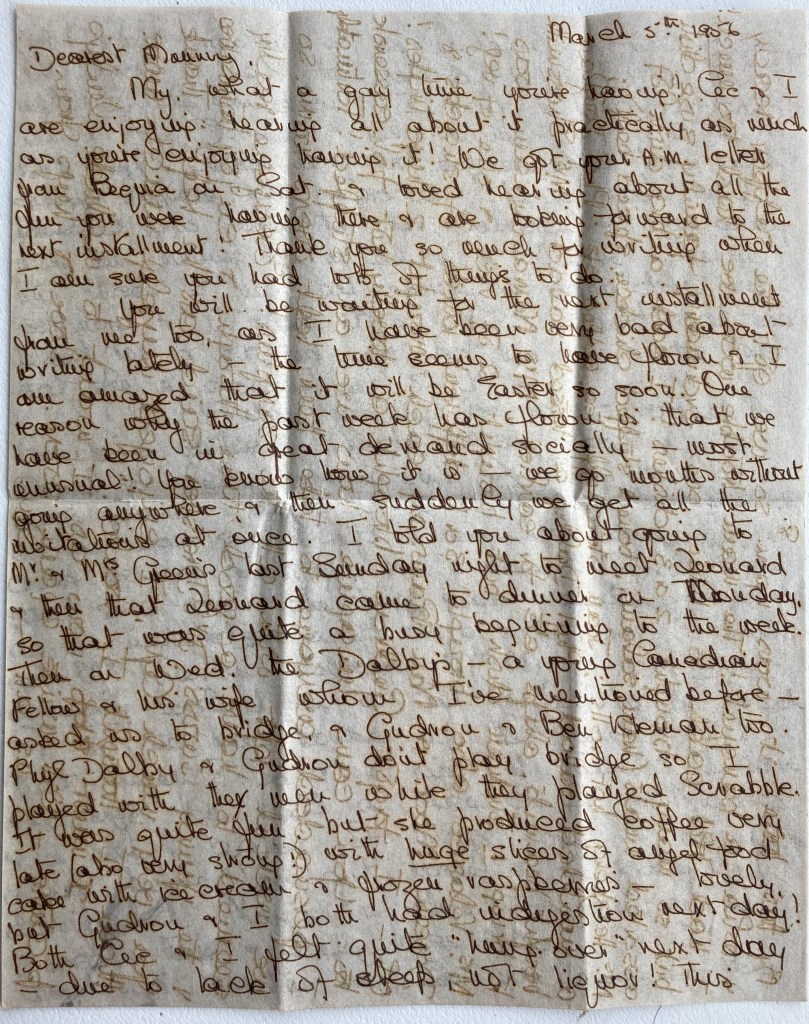 March 5th 1956
Dearest Mummy,
My, what a gay time you're having! Cec & I
are enjoying hearing all about it practically as much
as you're enjoying having it! We got your A.M. letter
from Bequia on Sat. & loved hearing about all the
fun you were having there & are looking forward to the
next installment! Thank you so much for writing when
I am sure you had lots of things to do.
You will be wanting for the next installment
from me too, as I have been very bad about
writing lately – the time seems to have flown & I
am amazed that it will be Easter so soon. One
reason why the past week has flown is that we
have been in great demand socially – most
unusual! You know how it is – we go months without
going anywhere & then suddenly we get all the
invitations at once. I told you about going to
Mr & Mrs Green's last Sunday night to meet Leonard
& then that Leonard came to dinner on Monday,
so that was quite a busy beginning to the week.
Then on Wed. the Dalby's – a young Canadian
Fellow & his wife whom I've mentioned before –
asked us to bridge, & Gudron & Ben Kleman too.
Phyl Dalby & Gudron don't play bridge so I
played with the men while they played Scrabble.
It was quite fun but she produced coffee very
late (also very strong!) with huge slices of angel food
cake with ice cream & frozen raspberries – lovely,
but Gudron & I both had indigestion next day!
Both Cec & I felt quite "hung over" next day
– due to lack of sleep, not liquor! This